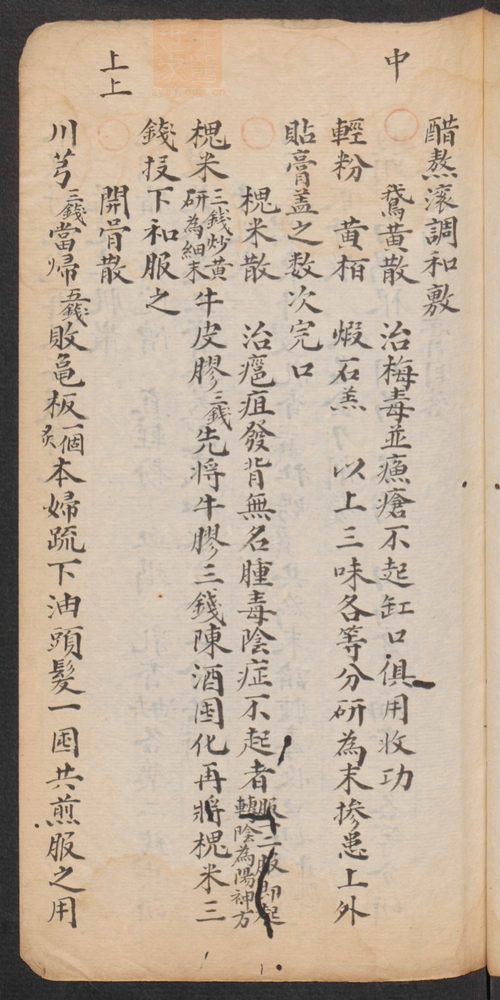 醋熬滾調和敷
中
鵞黃散 治梅毒並瘰瘡不起缸口俱用收功
輕粉 黃栢 煆石羔 以上三味各等分研為末摻患上外
貼膏盖之数次完口
槐米散 治癰疽發背無名腫毒陰症不起者 服一服即起 轉陰為陽神方
槐米 三錢炒黃 研為細末 牛皮膠 三錢 先將牛膠三錢陳酒囤化再將槐米三
錢投下和服之
上上
開骨散
川芎 三錢 當帰 五錢 敗龟板 一個 炙 本婦疏下油頭髮一囤共煎服之用